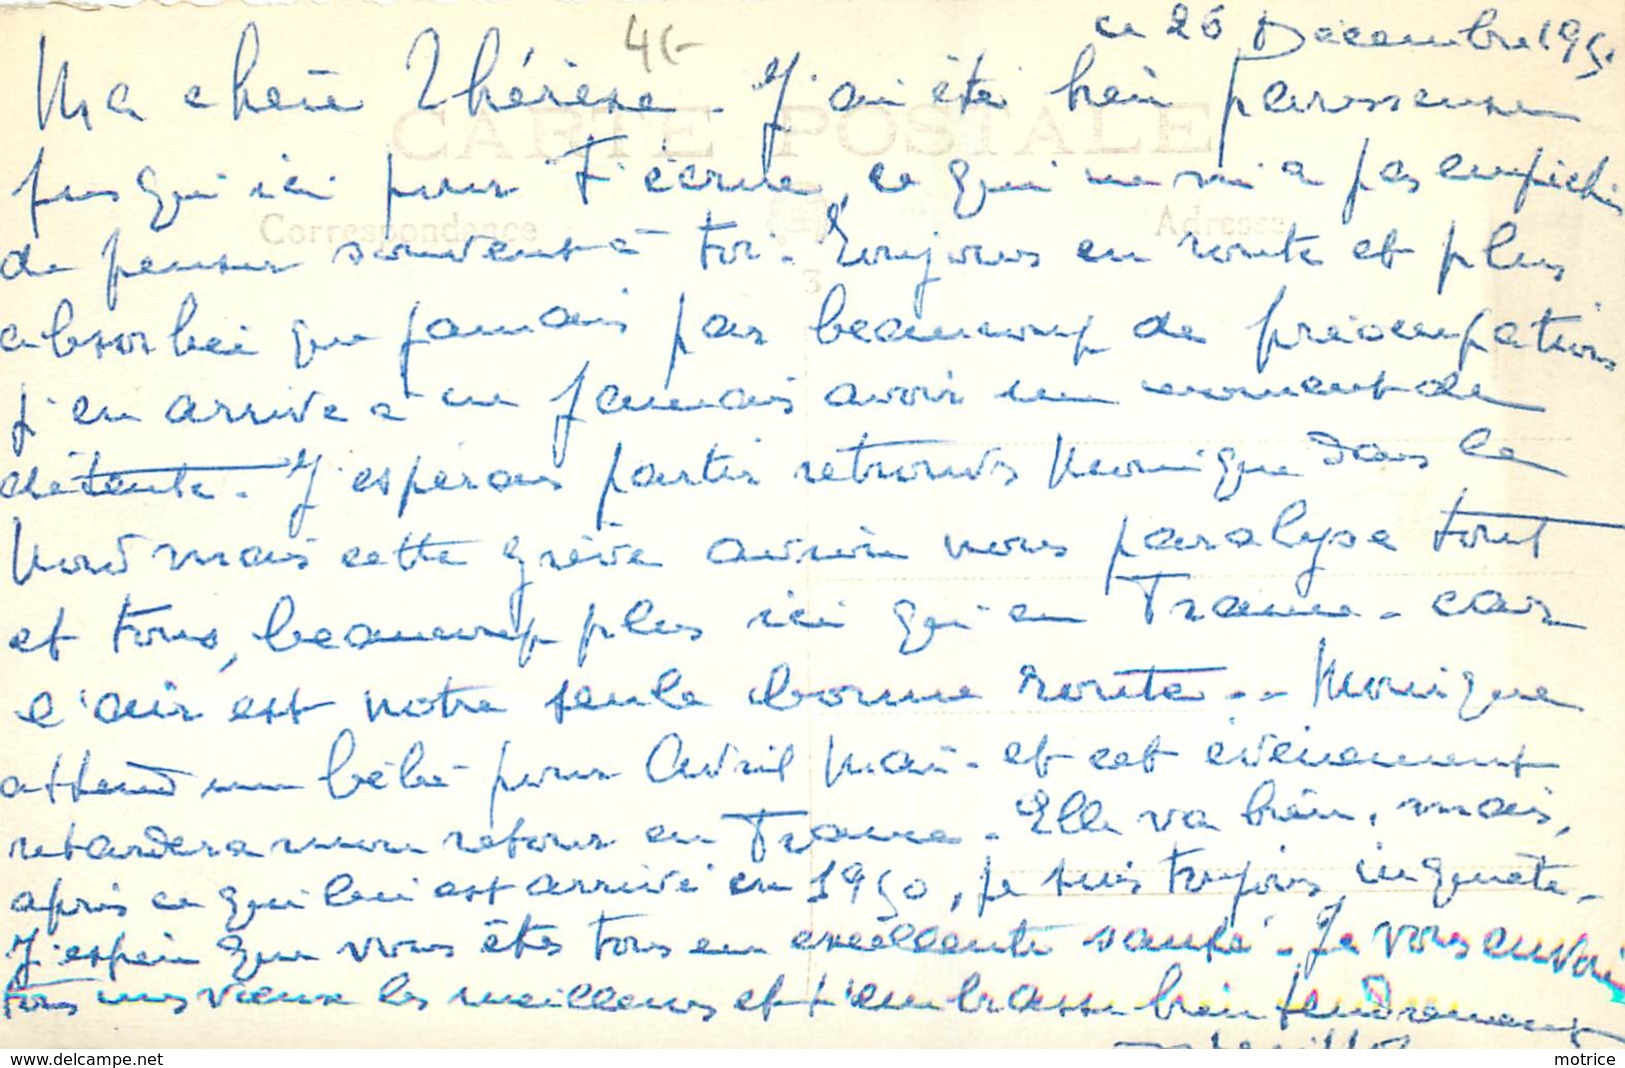 4(-
ce 26 Décembre 195
Ma chère Thérèse - J'ai été bien paresseuse
CARTE POSTALE
jusqu'ici pour t'écrire, ce qui ne m'a pas empêché
Correspondance Adresse
de penser souvent à toi. Toujours en route et plus
3
absorbée que jamais par beaucoup de préoccupations
j'en arrive à ne jamais avoir un moment de
détente. J'espérais partir retrouver Monique dans le
Nord mais cette grève nous paralyse tout
et tous, beaucoup plus ici qu'en France - car
l'air est notre seule bonne route -- Monique
attend un bébé pour Avril Mai - et cet évènement
retardera mon retour en France - Elle va bien, mais,
après ce qui lui est arrivé en 1950, je suis toujours inquiète -
J'espère que vous êtes tous en excellente santé - Je vous envoie
tous mes vœux les meilleurs et t'embrasse bien tendrement
motrice